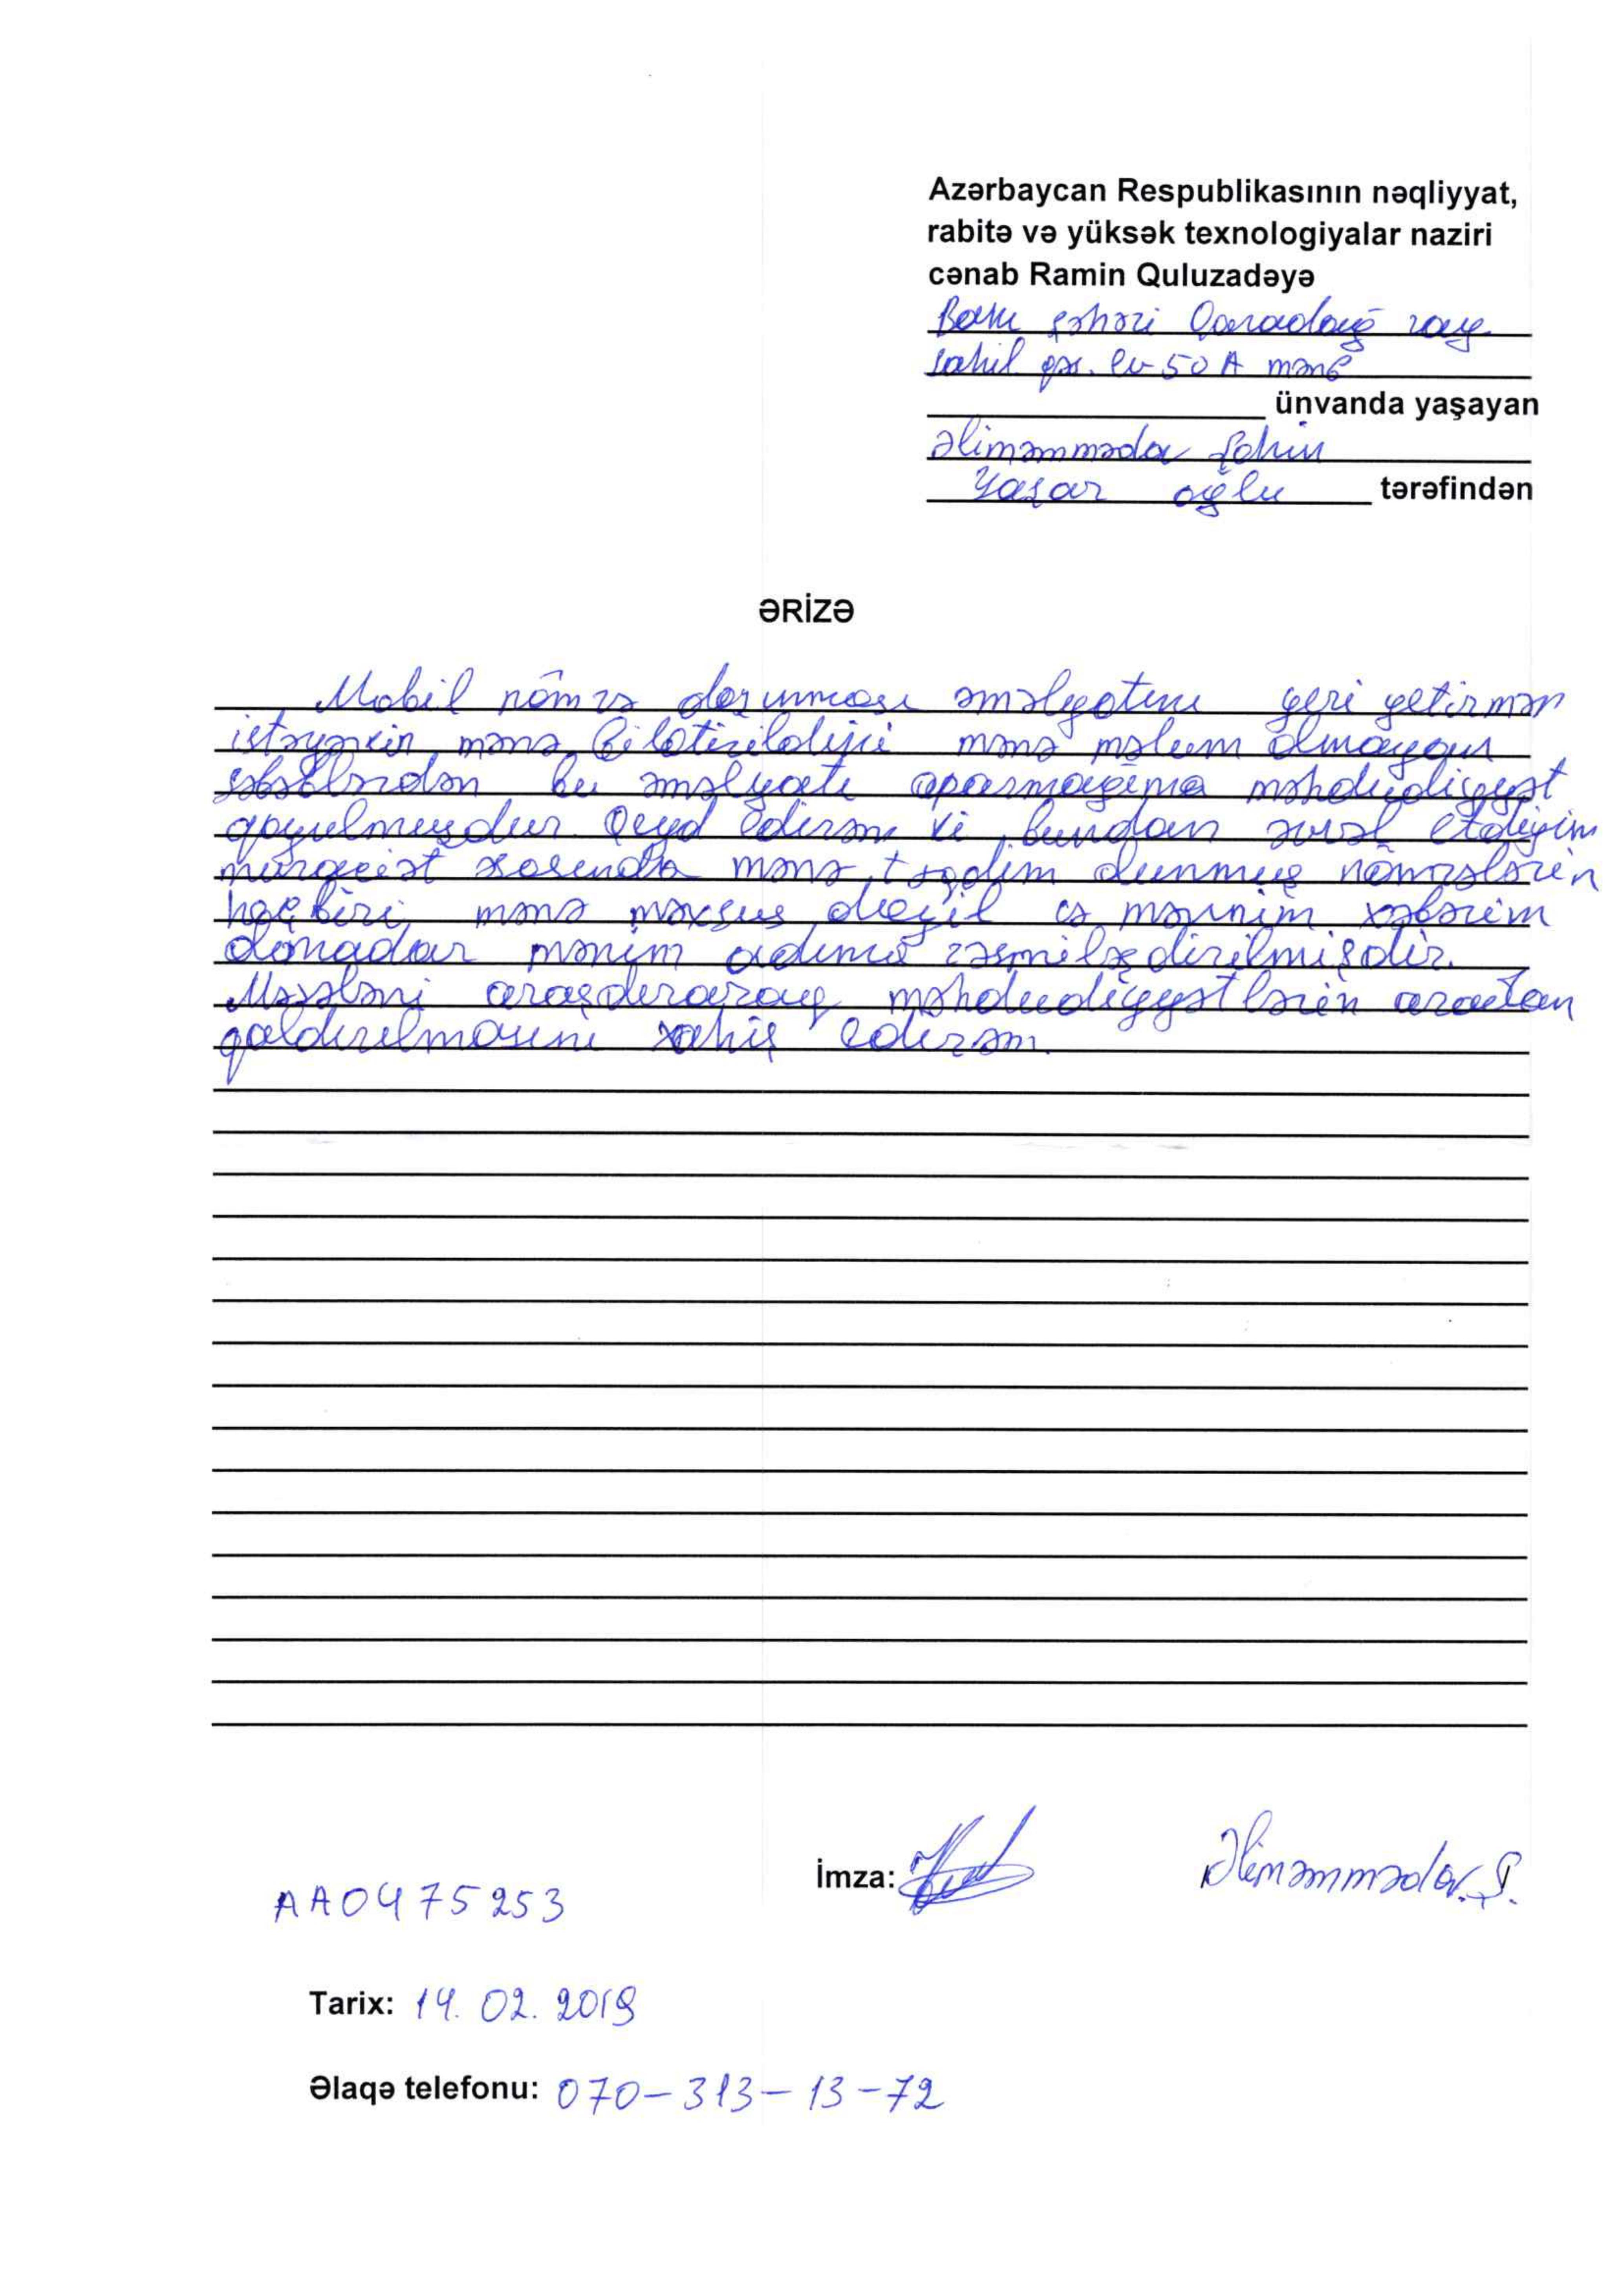 Azərbaycan Respublikasının nəqliyyat,
rabitə və yüksək texnologiyalar naziri
cənab Ramin Quluzadəyə
Bakı şəhəri Qaradağ ray
Sahil qəs. ev 50 A mən 6
ünvanda yaşayan
Əliməmmədov Şahin
Yaşar oğlu tərəfindən
ƏRİZƏ
Mobil nömrə daşınması əməlyatını yeri yetirmən
istəyərkin mənə bilətirildiyi mənə məlum olmayan
səbəblərdən bu əməlyatı aparmağıma məhdudiyyət
qoyulmuşdur. Qeyd edirəm ki, bundan əvvəl etdiyim
müraciət əsasında mənə təqdim olunmuş nömrələrin
heç biri mənə məxsus deyil və mənim xəbərim
olmadan mənim adıma rəsmiləşdirilmişdir.
Məsələni araşdıraraq məhdudiyyətlərin aradan
qaldırılmasını xahiş edirəm.
İmza: Əliməmmədov. Ş.
AA0475253
Tarix: 14. 02. 2019
Əlaqə telefonu: 070-313-13-72